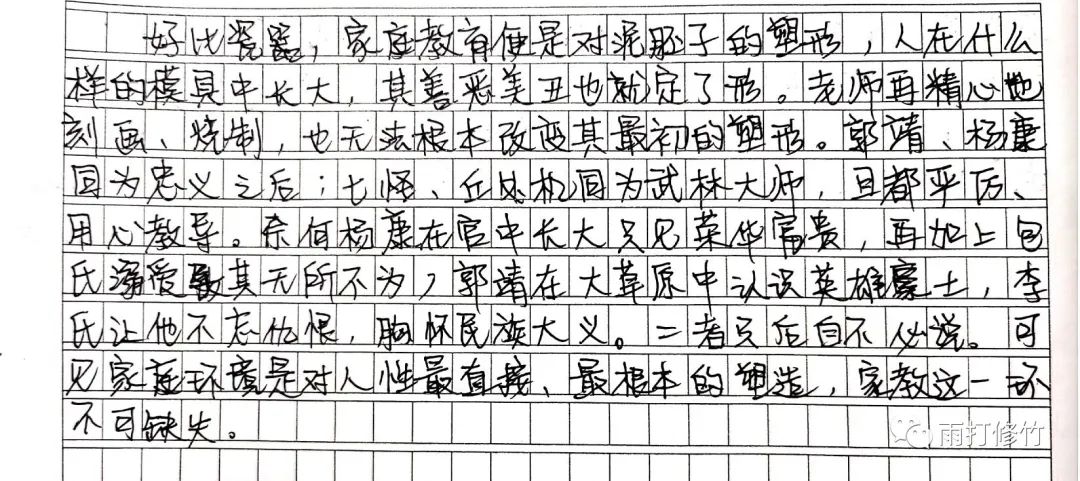 好比瓷器，家庭教育便是对泥胚子的塑形，人在什么
样的模具中长大，其善恶美丑也就定了形。老师再精心地
刻画、烧制，也无法根本改变其最初的塑形。郭靖、杨康
同为忠义之后；七怪、丘处机同为武林大师，且都严厉、
用心教导。奈何杨康在官中长大只见荣华富贵，再加上包
氏溺爱致其无所不为，郭靖在大草原中认识英雄豪士，李
氏让他不忘仇恨，胸怀民族大义。二者只后自不必说。可
见家庭环境是对人性最直接、最根本的塑造，家教这一环
不可缺失。
雨打修竹